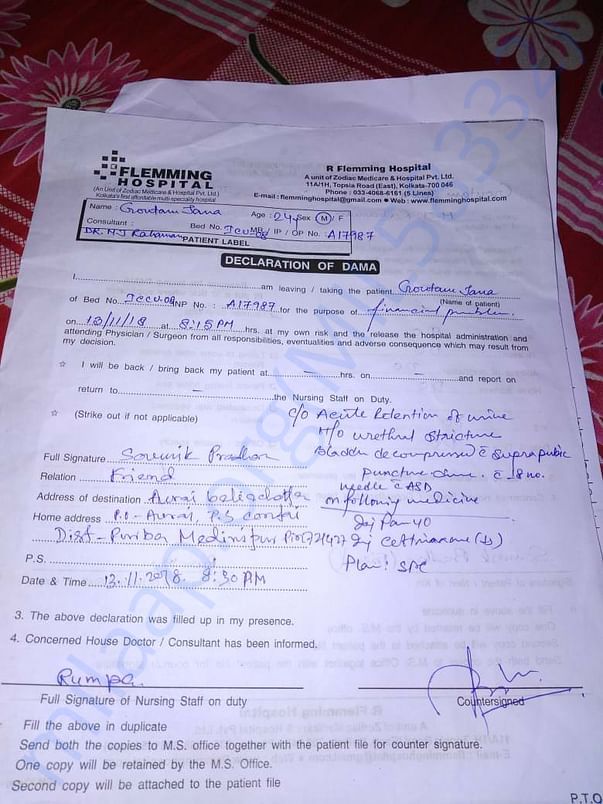 FLEMMING
HOSPITAL
(An Unit of Zodiac Medicare & Hospital Pvt. Ltd.)
Kolkata's first affordable multi speciality hospital
R Flemming Hospital
A unit of Zodiac Medicare & Hospital Pvt. Ltd.
11A/1H, Topsia Road (East), Kolkata-700 046
Phone : 033-4068-6161 (5 Lines)
E-mail : flemminghospital@gmail.com ● Web : www.flemminghospital.com
Name Goutam Jana Age : 24 Sex M / F
Consultant : Bed No. Iccu.08 IP / OP No. : A17987
DR. NJ Rahaman PATIENT LABEL
DECLARATION OF DAMA
I am leaving / taking the patient Goutam Jana
(Name of patient)
of Bed No. Iccu.08 INP No. : A17987 for the purpose of financial problem.
on 12/11/18 at 8:15 PM hrs. at my own risk and the release the hospital administration and
attending Physician / Surgeon from all responsibilities, eventualities and adverse consequence which may result from
my decision.
☆ I will be back / bring back my patient at – hrs. on – and report on
return to – the Nursing Staff on Duty.
☆ (Strike out if not applicable)
c/o Acute Retention of urine
H/o urethral stricture
Bladder decompressed c̄ suprapubic
puncture c̄ 18 no.
needle c̄ ASD
on following medicine
Inj Pan 40
Inj
Plan: SPC
Full Signature Soumik Pradhan
Relation Friend
Address of destination Aurai
Home address P.O - Aurai, P.S contai
Dist - Purba Medinipur Pin 721427
P.S.
Date & Time 12.11.2018 8:30 PM
3. The above declaration was filled up in my presence.
4. Concerned House Doctor / Consultant has been informed.
Rumpa
Full Signature of Nursing Staff on duty
Countersigned
Fill the above in duplicate
Send both the copies to M.S. office together with the patient file for counter signature.
One copy will be retained by the M.S. Office.
Second copy will be attached to the patient file
P.T.O